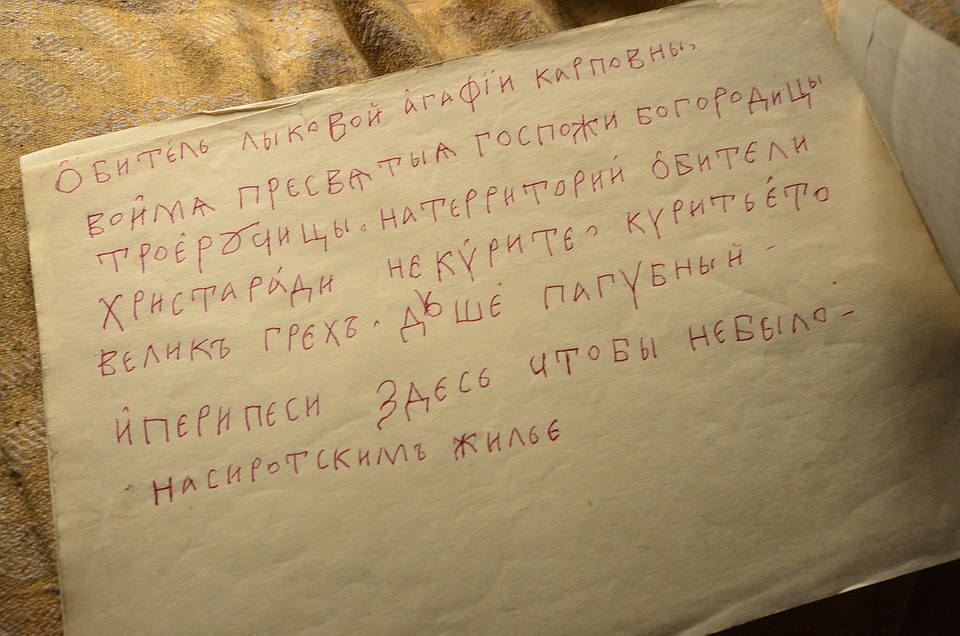 Обите́ль лыковой агафїи карповны.
войма пресватыа госпожи богородицы
троерꙋчицы. натерриторий обители
христара́ди некꙋрите, куритье́то
великъ грехъ. дꙋше пагубный -
йперипеси здесь чтобы небыло -
насиротскимъ жилье